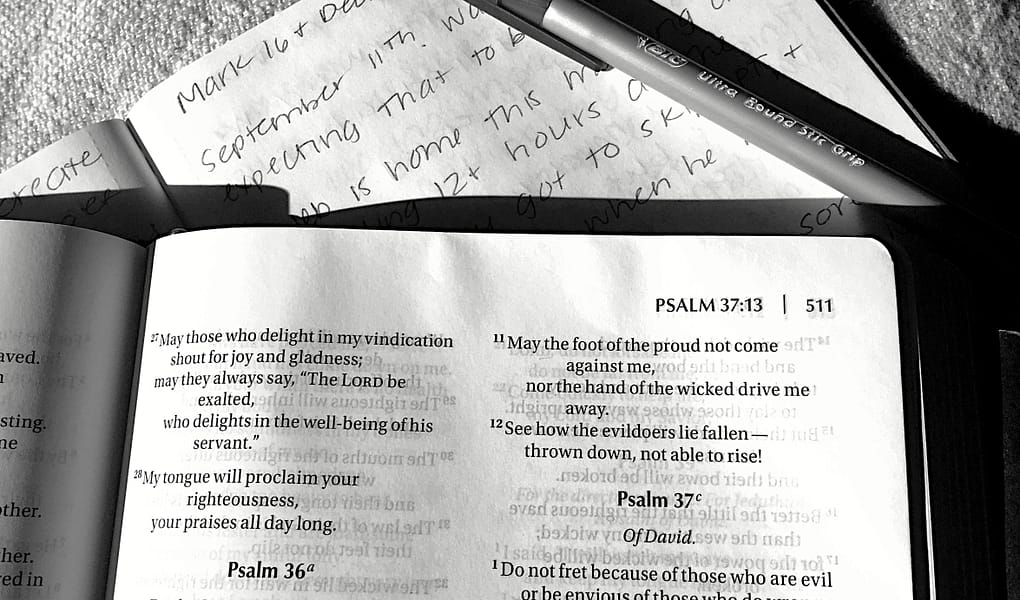 Mark 16+
September 11th.
expecting that to b
is home this m
12+ hours a
got to ski
when he
sor
create
Velocity Ultra Round Stic Grip
PSALM 37:13 | 511
aved.
sting.
ne
other.
her.
ed in
27May those who delight in my vindication
shout for joy and gladness;
may they always say, “The LORD be
exalted,
who delights in the well-being of his
servant.”
28My tongue will proclaim your
righteousness,
your praises all day long.
Psalm 36a
11May the foot of the proud not come
against me,
nor the hand of the wicked drive me
away.
12See how the evildoers lie fallen—
thrown down, not able to rise!
Psalm 37c
Of David.
1Do not fret because of those who are evil
or be envious of those who do